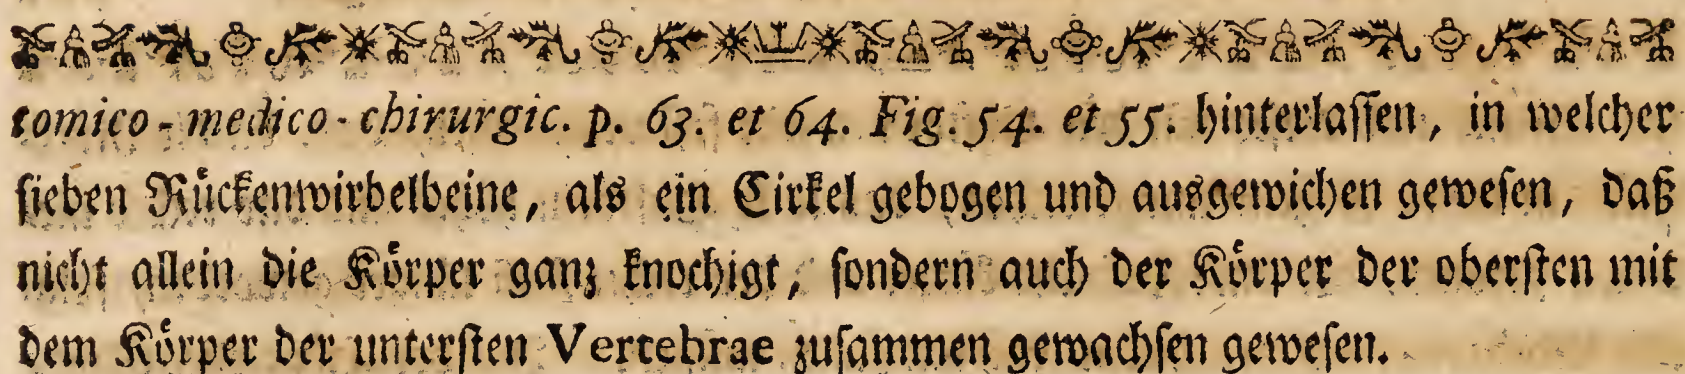 tomico-medico-chirurgic. p. 63. et 64. Fig. 54. et 55. hinterlaſſen, in welcher
ſieben Ruͤckenwirbelbeine, als ein Cirkel gebogen und ausgewichen geweſen, daß
nicht allein die Koͤrper ganz knochigt, ſondern auch der Koͤrper der oberſten mit
dem Koͤrper der unterſten Vertebrae zuſammen gewachſen geweſen.